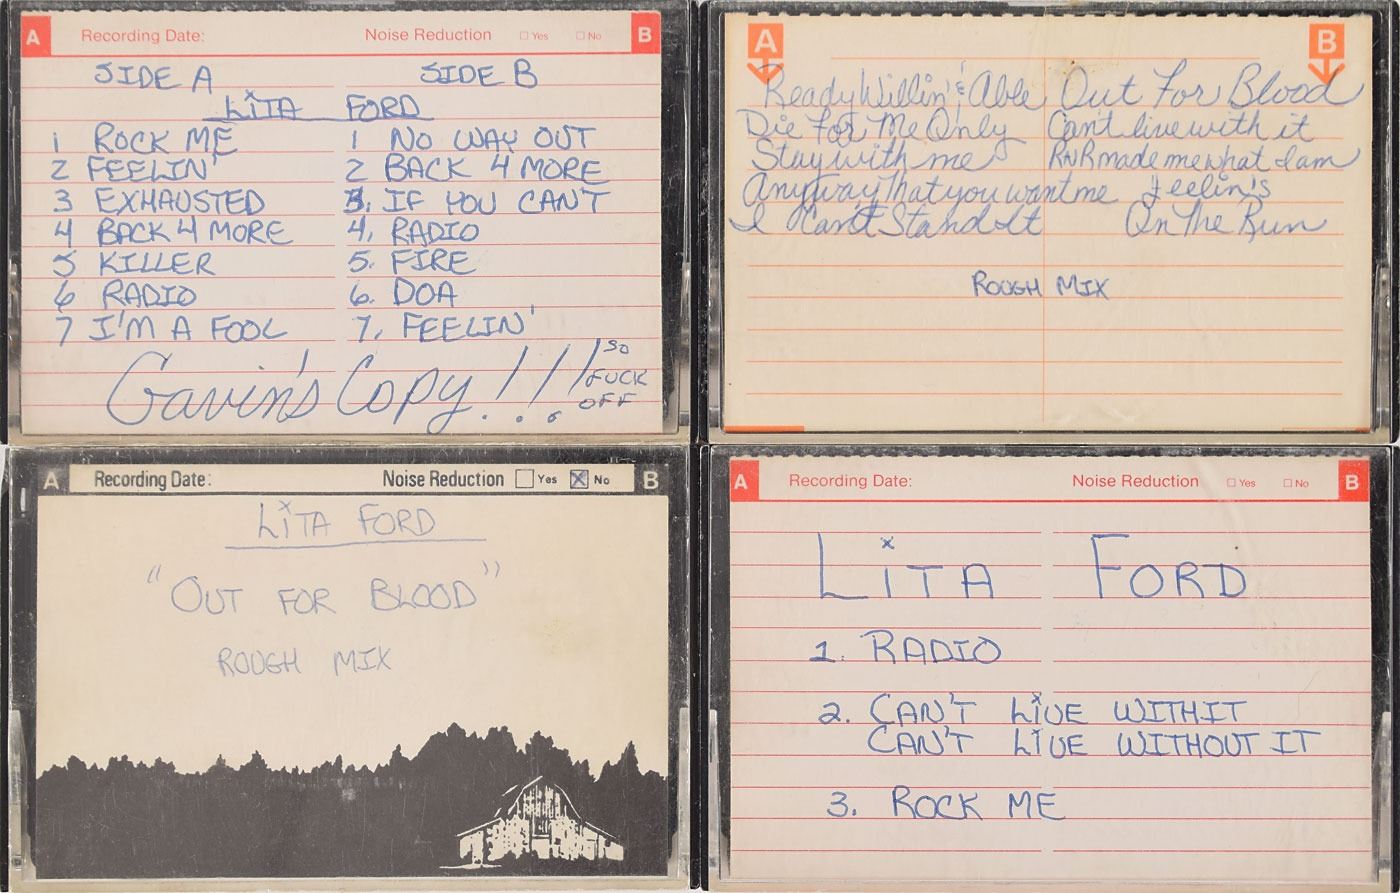 A Recording Date: Noise Reduction Yes No B
SIDE A SIDE B
LiTA FORD
1 ROCK ME 1 NO WAY OUT
2 FEELIN' 2 BACK 4 MORE
3 EXHAUSTED 3. IF YOU CAN'T
4 BACK 4 MORE 4, RADIO
5 KILLER 5. FIRE
6 RADIO 6. DOA
7 I'M A FOOL 7, FEELIN'
Gavin's Copy!!!
SO
FUCK
OFF
A B
Ready Willin' & Able Out For Blood
Die For Me Only Cant live with it
Stay with me RNR made me what I am
Anyway that you want me Feelin's
I Can't Stand It On The Run
ROUGH MIX
A Recording Date: Noise Reduction Yes No B
LiTA FORD
"OUT FOR BLOOD"
ROUGH MIX
A Recording Date: Noise Reduction Yes No B
LiTA FORD
1. RADIO
2. CAN'T LiVE WITH IT
CAN'T LIVE WITHOUT IT
3. ROCK ME